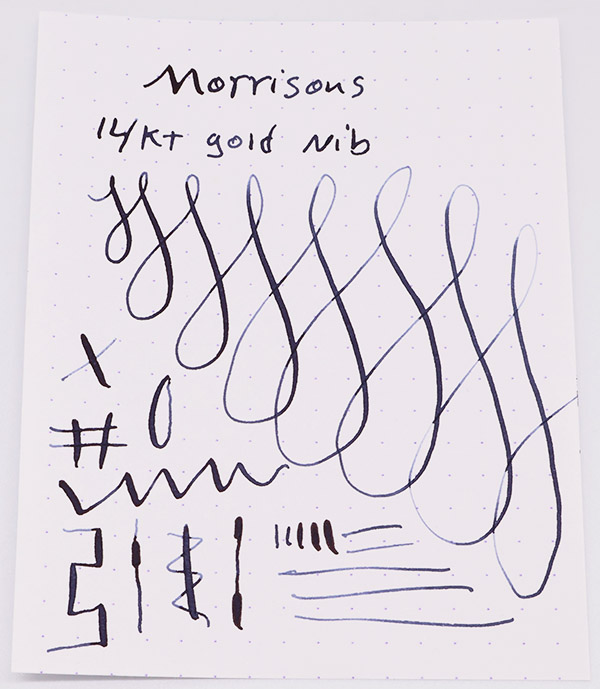 Morrisons
14Kt gold Nib